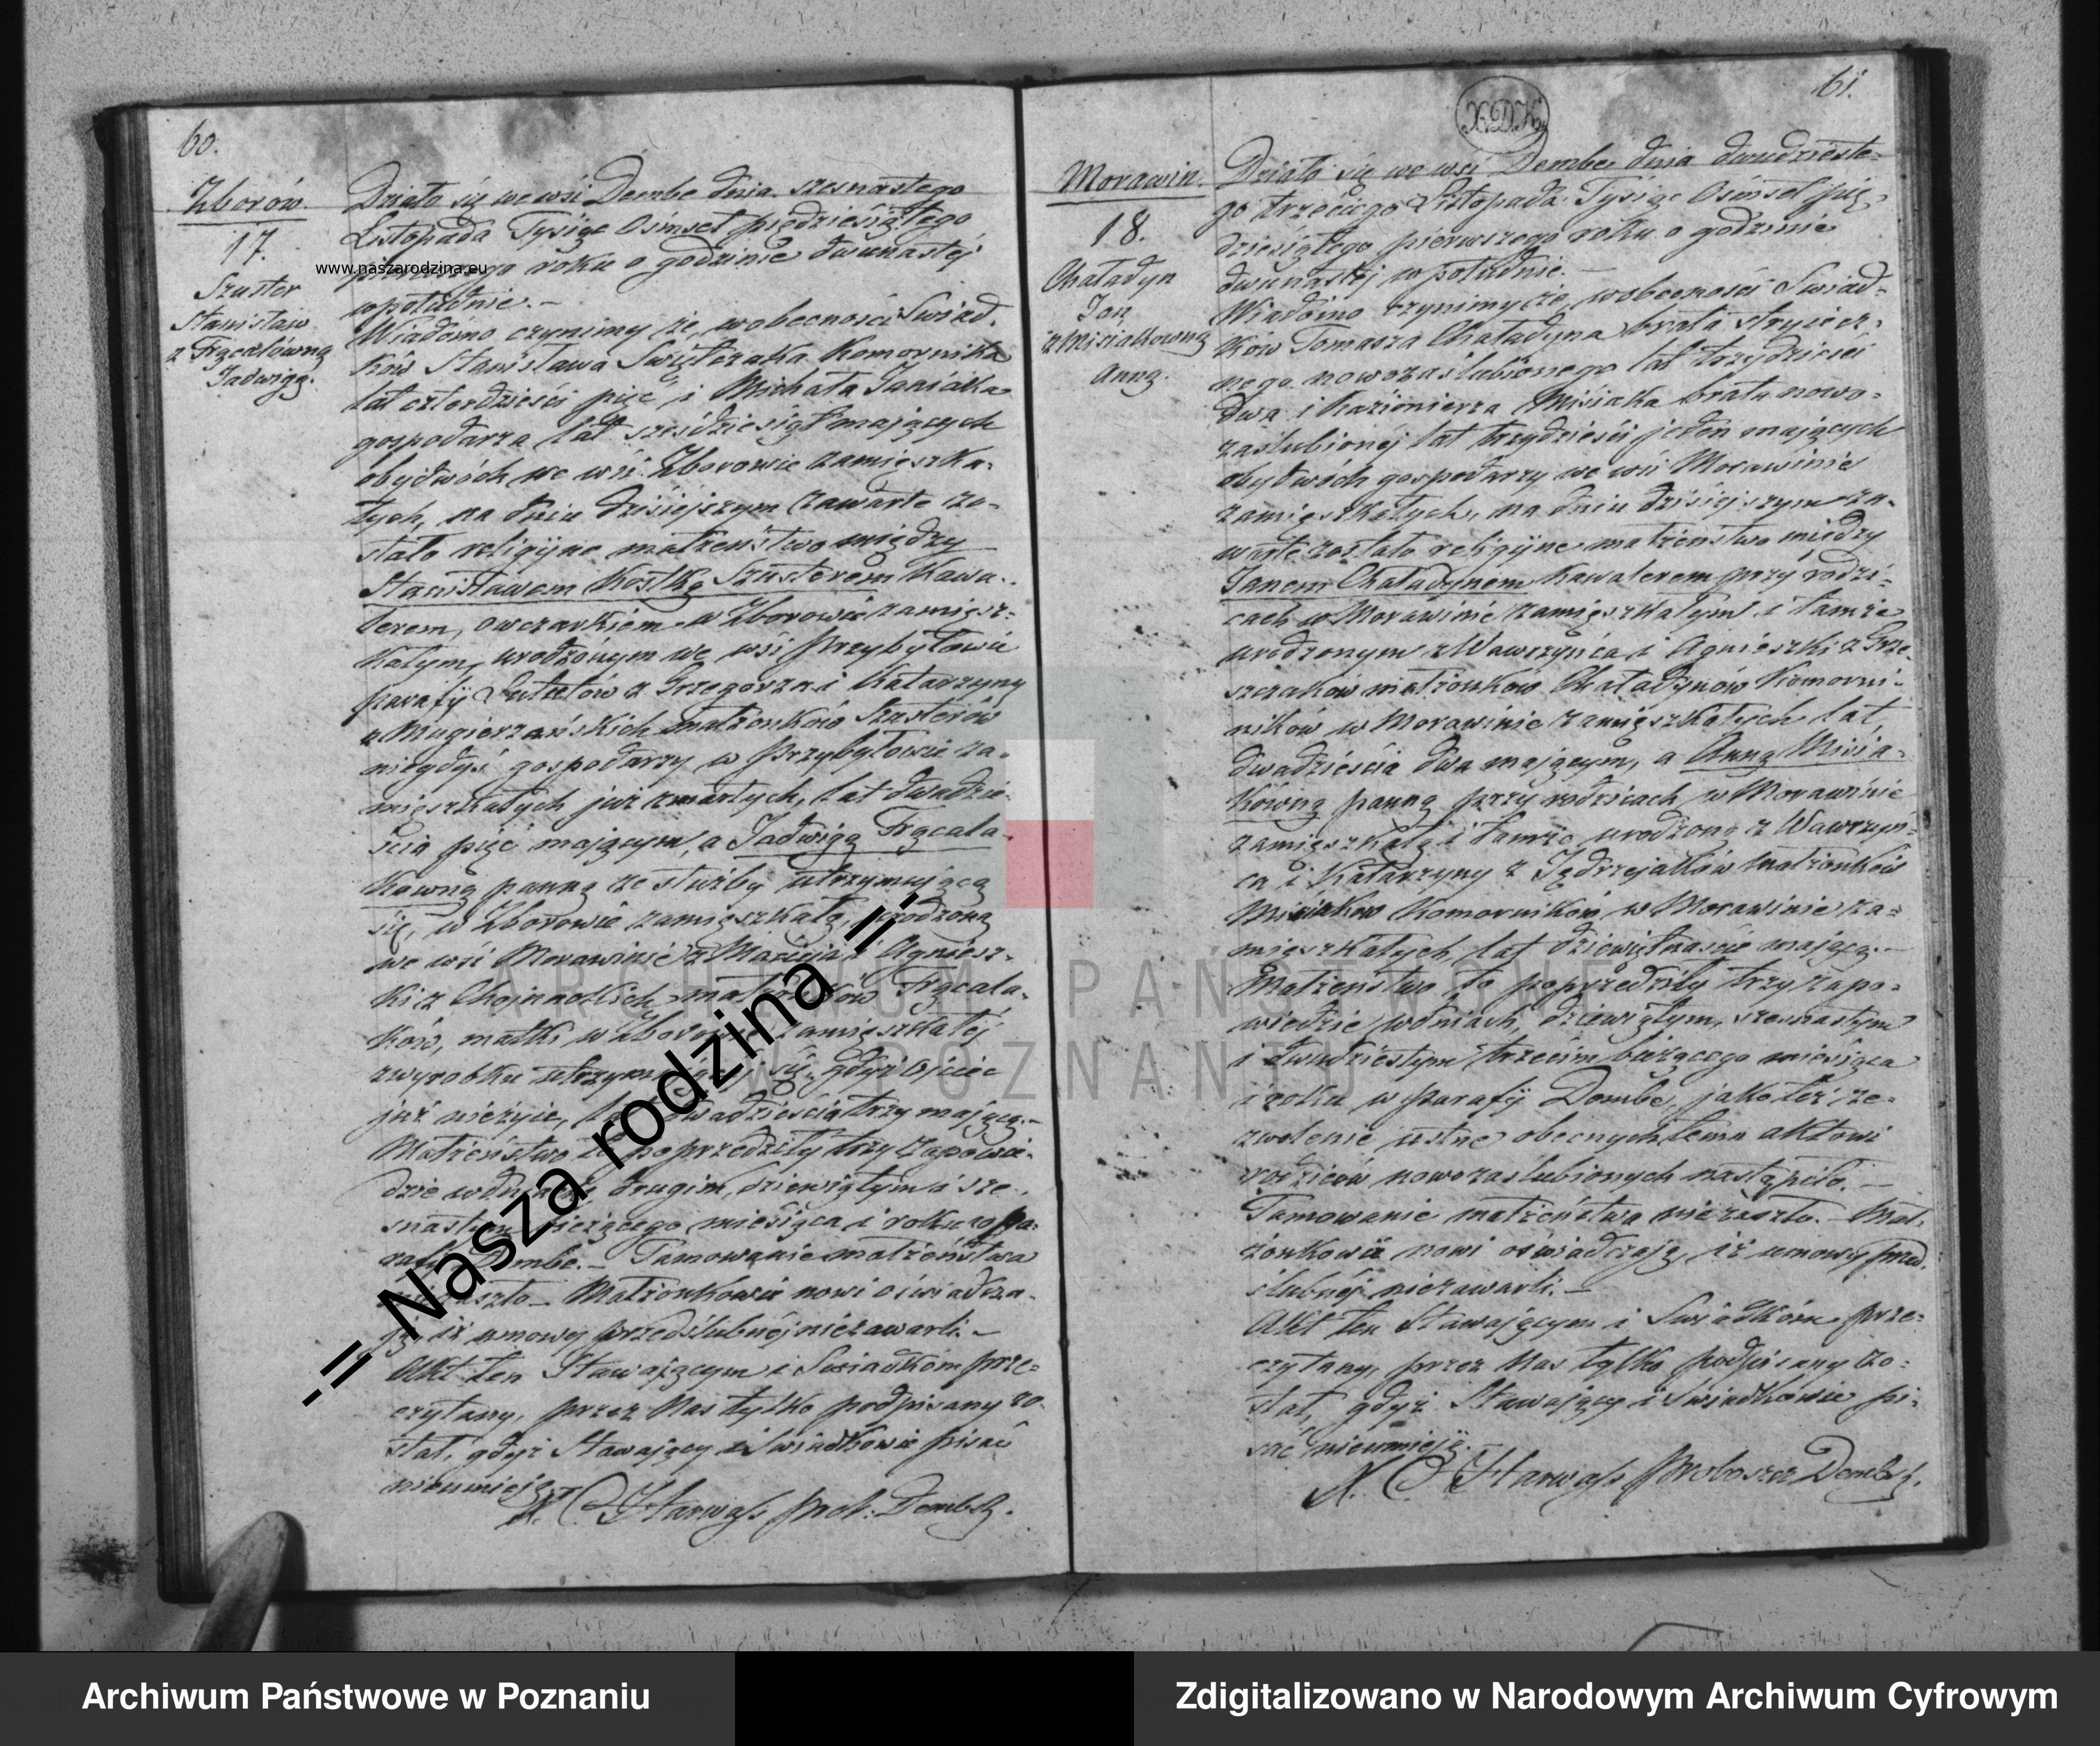 60.
Zborów.
17.
Szuster
Stanisław
z Frącalówną
Jadwigą.
Działo się we wsi Dembe dnia szesnastego
Listopada Tysiąc Ośmset pięćdziesiątego
pierwszego roku o godzinie dwunastej
w południe. –
Wiadomo czynimy że w obecności Świad-
ków Stanisława Świętczaka Komornika
lat czterdzieści pięć i Michała Janiaka
gospodarza lat sześćdziesiąt mających
obydwóch we wsi Zborowie zamieszka-
łych, na dniu dzisiejszym zawarte zo-
stało religijne małżeństwo między
Stanisławem Kostką Szusterem Kawa-
lerem, owczarkiem w Zborowie zamiesz-
kałym, urodzonym we wsi Przybyłowie
parafij z Grzegorza i Katarzyny
z małżonków Szusterów
niegdyś gospodarzy w Przybyłowie za-
mieszkałych już zmarłych, lat dwadzie-
ścia pięć mającym, a Jadwigą Frącala-
kówną panną ze służby utrzymującą
się, w Zborowie zamieszkałą, urodzoną
we wsi Morawinie z Macieja i Agniesz-
ki z Chojnackich małżonków Frącala-
ków, matki w Zborowie zamieszkałej
z wyrobku utrzymującej się, gdyż Ojciec
już nieżyie, lat dwadzieścia trzy mającą. –
Małżeństwo to poprzedziły trzy zapowie-
dzie w dniach, drugim, dziewiątym i sze-
snastym bieżącego miesiąca i roku w pa-
rafij Dembe. – Tamowanie małżeństwa
niezaszło – Małżonkowie nowi oświadcza-
ją, iż umowy przedślubnéj niezawarli. –
Akt ten Stawającym i Świadkom prze-
czytany, przez Nas tylko podpisany zo-
stał, gdyż Stawający i Świadkowie pisać
nieumieją.
Prob: Dembsk.
61.
Morawin.
18.
Chaładyn
Jan
z Misiakówną
Anną.
Działo się we wsi Dembe dnia dwudzieste-
go trzeciego Listopada Tysiąc Ośmset pię-
dziesiątego pierwszego roku o godzinie
dwunastéj w południe. –
Wiadomo czynimy że, w obecności Świad-
ków Tomasza Chaładyna brata stryiecz-
nego nowozaślubionego lat trzydzieści
dwa i Kazimierza Misiaka brata nowo-
zaślubionéj lat trzydzieści jeden mających
obydwóch gospodarzy we wsi Morawinie
zamieszkałych, na dniu dzisiejszym za-
warte zostało religijne małżeństwo między
Janem Chaładynem Kawalerem przy rodzi-
cach w Morawinie zamieszkałym i tamże
urodzonym z Wawrzyńca i Agnieszki z Grze-
szczaków małżonków Chaładynów Komorni-
ników w Morawinie zamieszkałych lat,
dwadzieścia dwa mającym, a Anną Misia-
kówną panną przy rodzicach w Morawinie
zamieszkałą i tamże urodzoną z Wawrzyn-
ca i Katarzyny z Jędrzejaków małżonków
Misiaków Komorników w Morawinie za-
mieszkałych lat dziewiętnaście mającą. –
Małżeństwo to poprzedziły trzy zapo-
wiedzie w dniach, dziewiątym, szesnastym
i dwudziestym trzecim bieżącego miesiąca
i roku w parafij Dembe, jako też ze-
zwolenie ustne obecnych temu aktowi
rodziców nowozaślubionych nastąpiło. –
Tamowanie małżeństwa niezaszło. – Mał-
żonkowie nowi oświadczają, iż umowy przed-
ślubnéj niezawarli. –
Akt ten Stawającym i Świadkom prze-
czytany, przez Nas tylko podpisany zo-
stał, gdyż Stawający i Świadkowie pi-
sać nieumieją.
Proboszcz Dembsk.
www.naszarodzina.eu
-= Nasza rodzina =-
ARCHIWUM PAŃSTWOWE
W POZNANIU
Archiwum Państwowe w Poznaniu
Zdigitalizowano w Narodowym Archiwum Cyfrowym